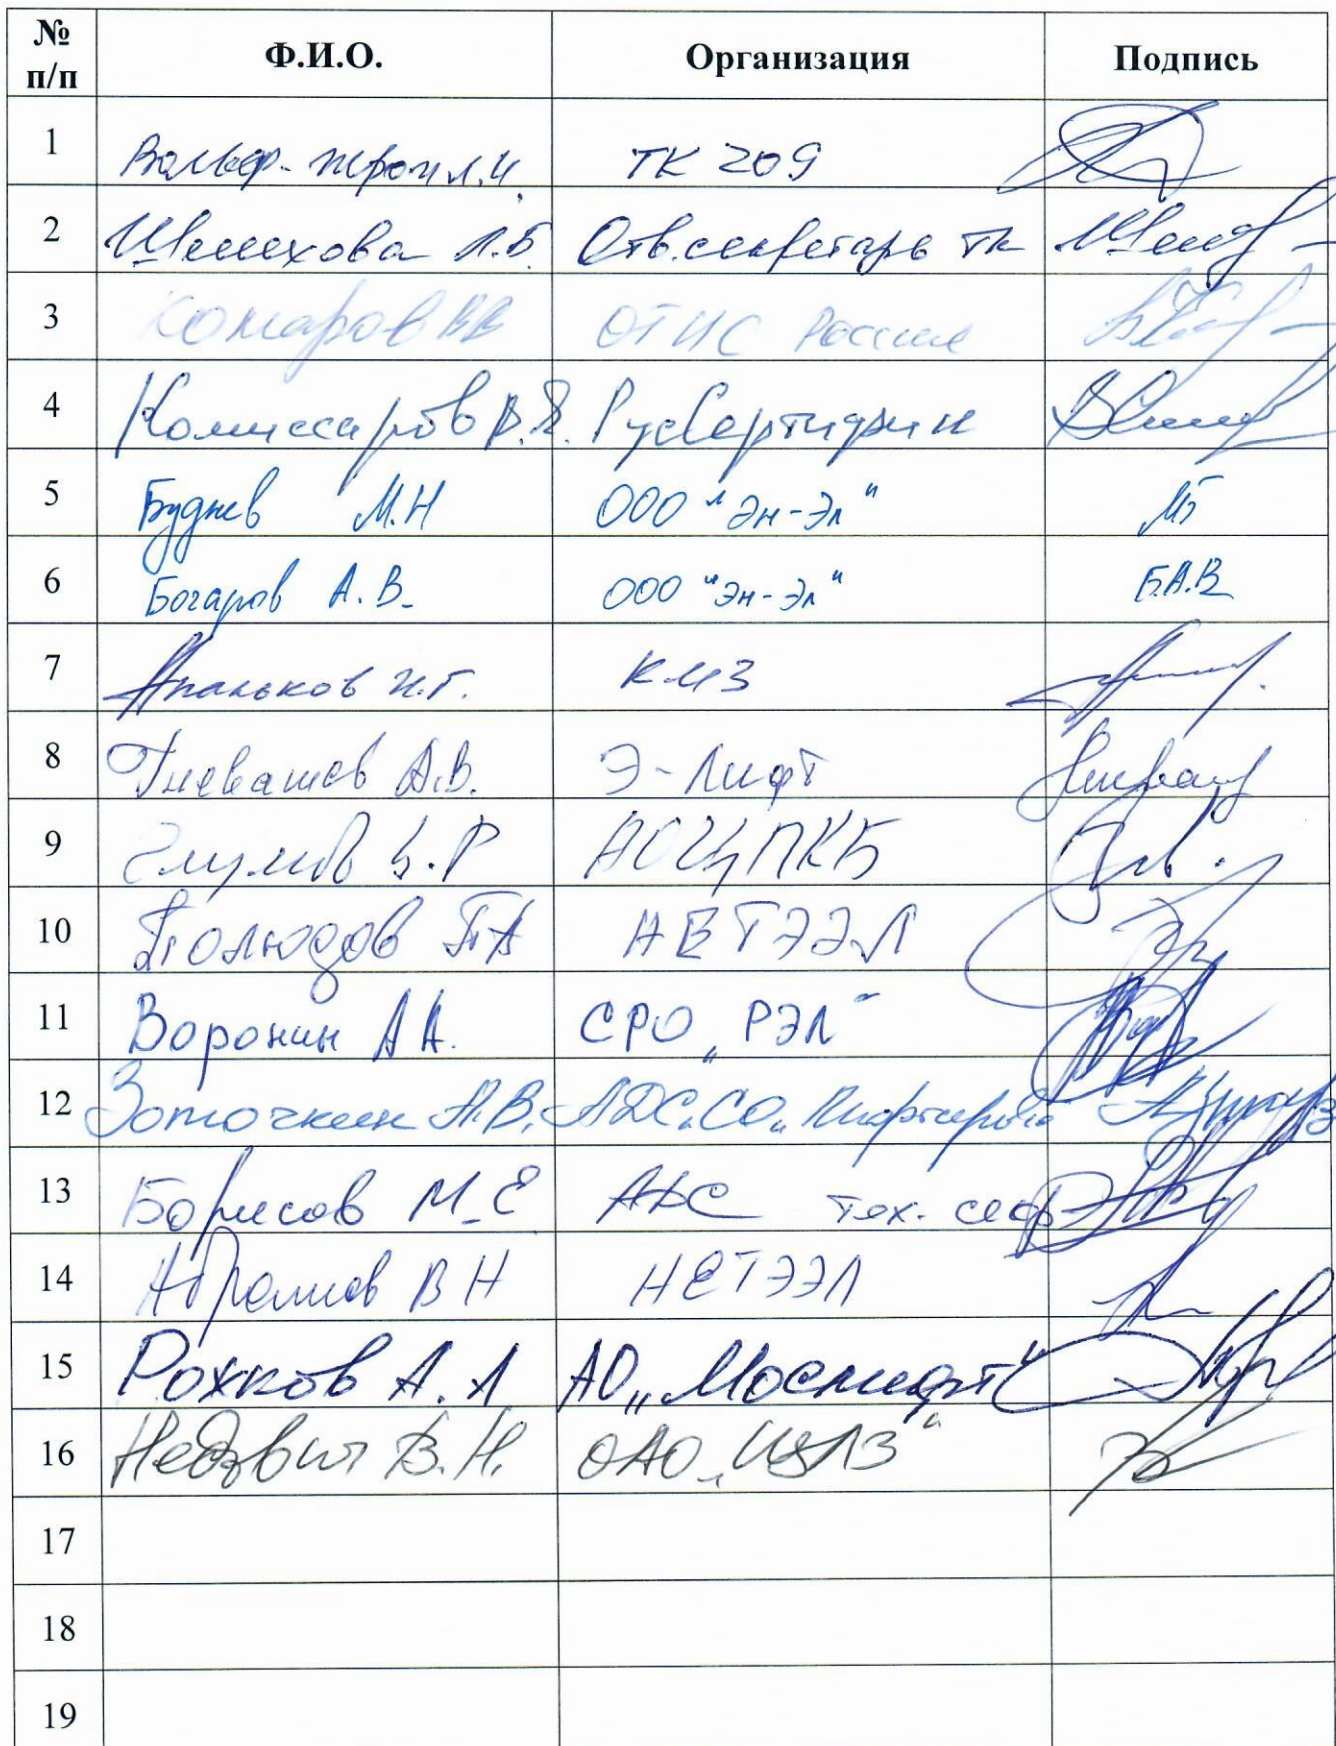 № п/п Ф.И.О. Организация Подпись
1 Вольф-Трон Л.И. ТК 209
2 Шелехова Л.Б. Отв.секретарь ТК
3 Комаров ВВ ОТИС Россия
4 Комиссаров В.Я. РусСертифик
5 Буднев М.Н ООО "Эн-Эл" МБ
6 Богаров А.В. ООО "Эн-Эл" Б.А.В
7 Апальков И.Г. КМЗ
8 Гневашев А.В. Э-Лифт
9 АО ЦПКБ
10 Полюдов ПА НЕТЭЭЛ
11 Воронин А А. СРО „РЭЛ"
12 Заточкин А.В.
13 Борисов М.Е
14 Абрамов В Н НЕТЭЭЛ
15 Рохков А. Л АО „Мослифт"
16 Недзвит В.Н. ОАО
17
18
19